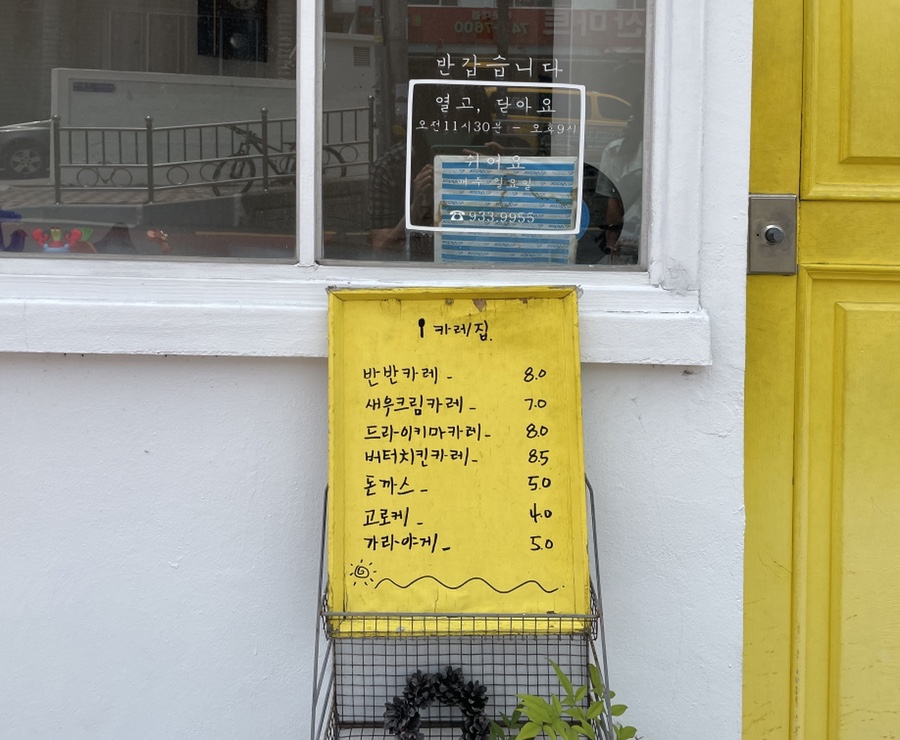 반갑습니다
열고, 닫아요
오전11시30분 - 오후9시
쉬어요
매주 월요일
☎933.9955
카레집.
반반카레 - 8.0
새우크림카레 - 7.0
드라이키마카레 - 8.0
버터치킨카레 - 8.5
돈까스 - 5.0
고로케 - 4.0
가라아게 - 5.0